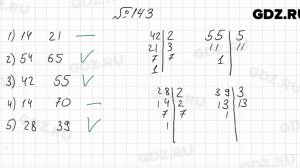 GDZ.RU
№143
1) 14 21 —
2) 54 65 ✓
3) 42 55 ✓
4) 14 70 —
5) 28 39 ✓
42 | 2
21 | 3
7 | 7
1
55 | 5
11 | 11
1
28 | 2
14 | 2
7 | 7
1
39 | 3
13 | 13
1
GDZ.RU